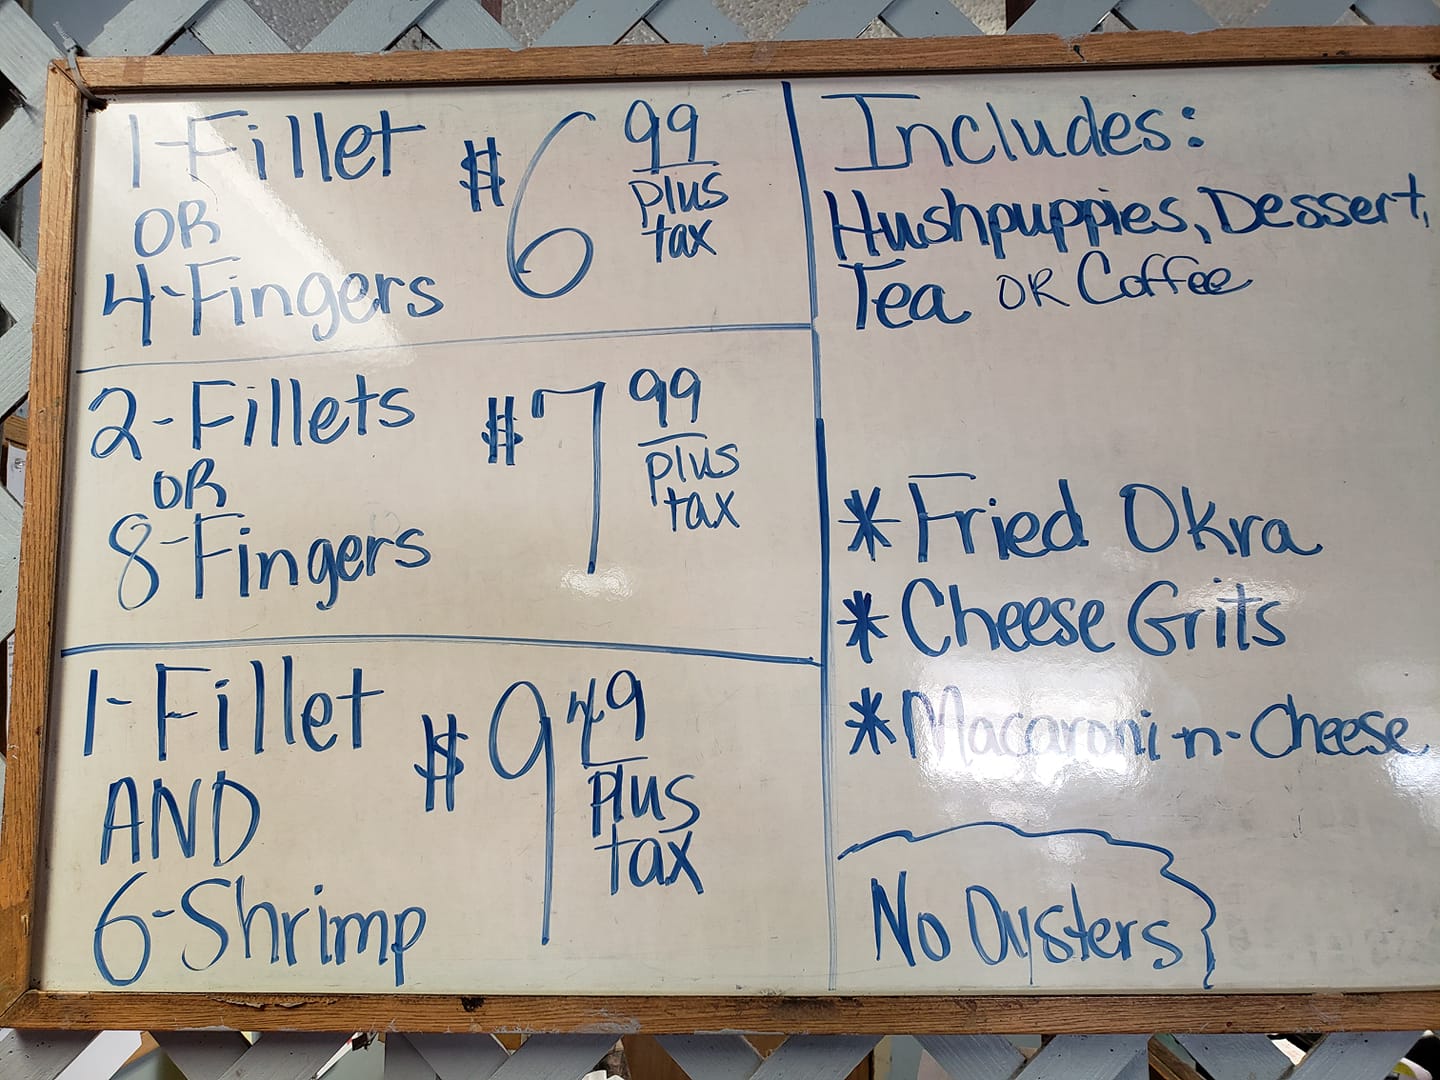 1-Fillet
OR
4-Fingers
$6 99
plus
tax
2-Fillets
OR
8-Fingers
$7 99
plus
tax
1-Fillet
AND
6-Shrimp
$9 49
plus
tax
Includes:
Hushpuppies, Dessert,
Tea OR Coffee
* Fried Okra
* Cheese Grits
* Macaroni-n-Cheese
No Oysters